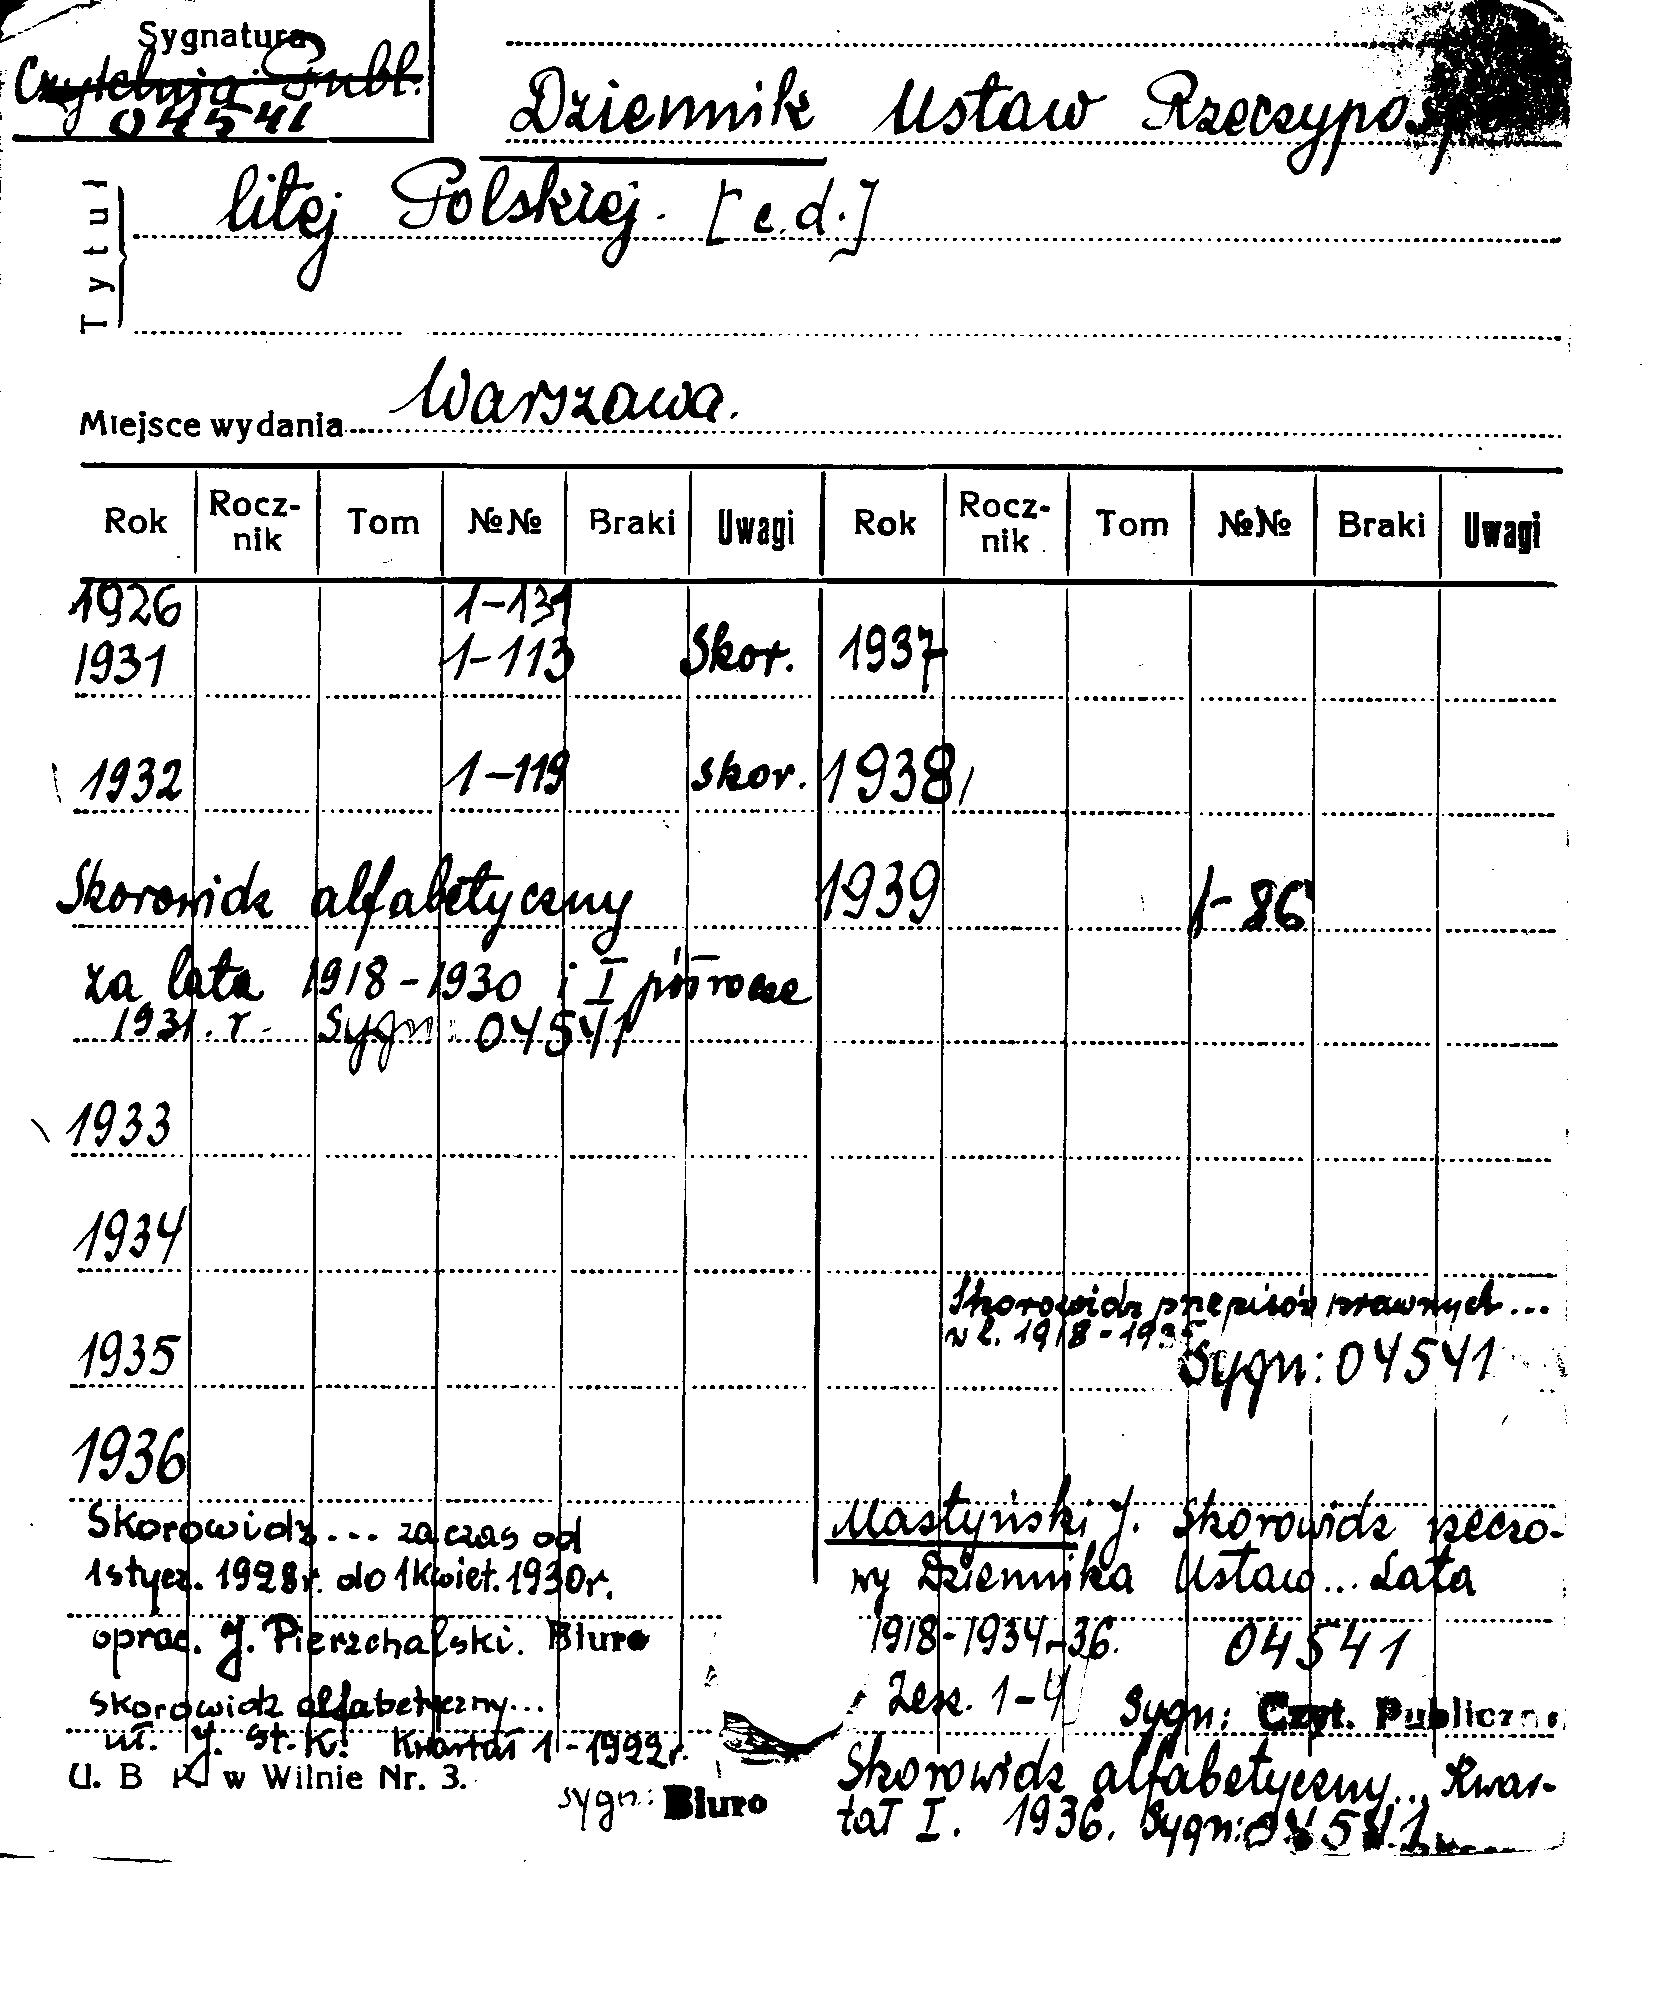 Sygnatura
Czytelnia Publ.
04541
Dziennik Ustaw Rzeczypospo
litej Polskiej. [c.d.]
Tytuł
Miejsce wydania Warszawa.
Rok Rocz-nik Tom №№ Braki Uwagi Rok Rocz-nik Tom №№ Braki Uwagi
1926 1-131
1931 1-113 Skor. 1937
1932 1-119 skor. 1938
Skorowidz alfabetyczny 1939 1-86
za lata 1918-1930 i I półrocze
1931. r. Sygn: 04541
1933
1934
Skorowidz przepisów prawnych...
w l. 1918-1935
1935 Sygn: 04541
1936
Skorowidz... za czas od
1 stycz. 1928r. do 1 kwiet. 1930r.
oprac. J. Pierzchalski. Biuro
skorowidz alfabetyczny...
uł. J. St. K. Kwartał 1-1922r.
sygn: Biuro
U. B K w Wilnie Nr. 3.
Mastyński J. Skorowidz rzeczo-
wy Dziennika Ustaw... Lata
1918-1934-36. 04541
Zesz. 1-4 Sygn: Czyt. Publiczna
Skorowidz alfabetyczny... Kwar-
tał I. 1936. Sygn: 04541